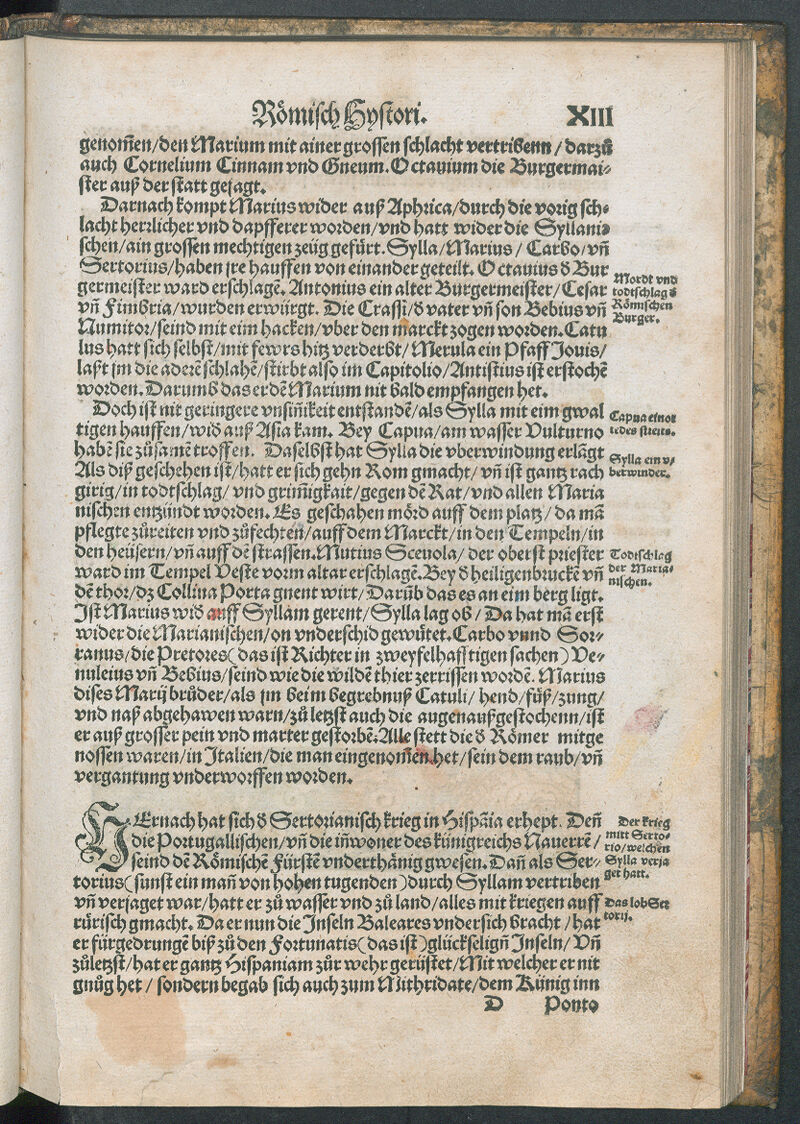 Römisch Hystori. XIII
genom̃en/den Marium mit ainer grossen schlacht vertribenn/darzů
auch Cornelium Cinnam vnd Gneum. Octauium die Burgermai-
ster auß der statt gejagt.
Darnach kompt Marius wider auß Aphrica/durch die vorig sch-
lacht herrlicher vnd dapfferer worden/vnd hatt wider die Syllani-
schen/ain grossen mechtigen zeüg gefürt. Sylla/Marius/ Carbo/vñ
Sertorius/haben jre hauffen von einander geteilt. Octauius d Bur
germeister ward erschlagẽ. Antonius ein alter Burgermeister/Cesar
vñ Fimbria/wurden erwürgt. Die Crassi/d vater vñ son Bebius vñ
Numitor/seind mit eim hacken/vber den marckt zogen worden. Catu
lus hatt sich selbst/mit fewrs hitz verderbt/Merula ein Pfaff Jouis/
laßt jm die aderẽ schlahẽ/stirbt also im Capitolio/Antistius ist erstochẽ
worden. Darumb das er dẽ Marium nit bald empfangen het.
Mordt vnd
todtschlag d
Römischen
Burger.
Doch ist nit geringere vnsiñikeit entstandẽ/als Sylla mit eim gwal
tigen hauffen/wid auß Asia kam. Bey Capua/am wasser Vulturno
habẽ sie zůsamẽ troffen. Daselbst hat Sylla die vberwindung erlãgt
Als diß geschehen ist/hatt er sich gehn Rom gmacht/vñ ist gantz rach
girig/in todtschlag/vnd grim̃igkait/gegen dẽ Rat/vnd allen Maria
nischen entzündt worden. Es geschahen mörd auff dem platz/da mã
pflegte zůreiten vnd zůfechten/auff dem Marckt/in den Tempeln/in
den heüsern/vñ auff dẽ strassen. Mutius Sceuola/der oberst priester
ward im Tempel Veste vorm altar erschlagẽ. Bey d heiligenbruckẽ vñ
dẽ thor/dz Collina Porta gnent wirt/Darũb das es an eim berg ligt.
Ist Marius wid auff Syllam gerent/Sylla lag ob/Da hat mã erst
wider die Marianischen/on vnderschid gewütet. Carbo vnnd Sor-
ranus/die Pretores(das ist Richter in zweyfelhafftigen sachen)Ve-
nuleius vñ Bebius/seind wie die wildẽ thier zerrissen wordẽ. Marius
dises Marij brůder/als jm beim begrebnuß Catuli/hend/füß/zung/
vnd naß abgehawen warn/zů letzst auch die augen außgestochenn/ist
er auß grosser pein vnd marter gestorbẽ. Alle stett die d Römer mitge
nossen waren/in Italien/die man eingenom̃en het/sein dem raub/vñ
vergantung vnderworffen worden.
Capua einor
tedes streits.
Sylla ein v-
berwinder.
Todtschlag
der Maria-
nischen.
HErnach hat sich d Sertorianisch krieg in Hispãia erhept. Deñ
die Portugallischen/vñ die iñwoner des künigreichs Nauerrẽ/
seind dẽ Römischẽ Fürstẽ vnderthänig gwesen. Dañ als Ser-
torius(sunst ein mañ von hohen tugenden)durch Syllam vertriben
vñ verjaget war/hatt er zů wasser vnd zů land/alles mit kriegen auff
rürisch gmacht. Da er nun die Inseln Baleares vndersich bracht/hat
er fürgedrungẽ biß zů den Fortunatis(das ist)glückseligñ Inseln/Vñ
zůletzst/hat er gantz Hispaniam zůr wehr gerüstet/Mit welcher er nit
gnůg het/sondern begab sich auch zum Mithridate/dem Künig inn
Der krieg
mitt Serto-
rio/welchen
Sylla verja
get hatt.
Das lob Ser
torij.
D Ponto